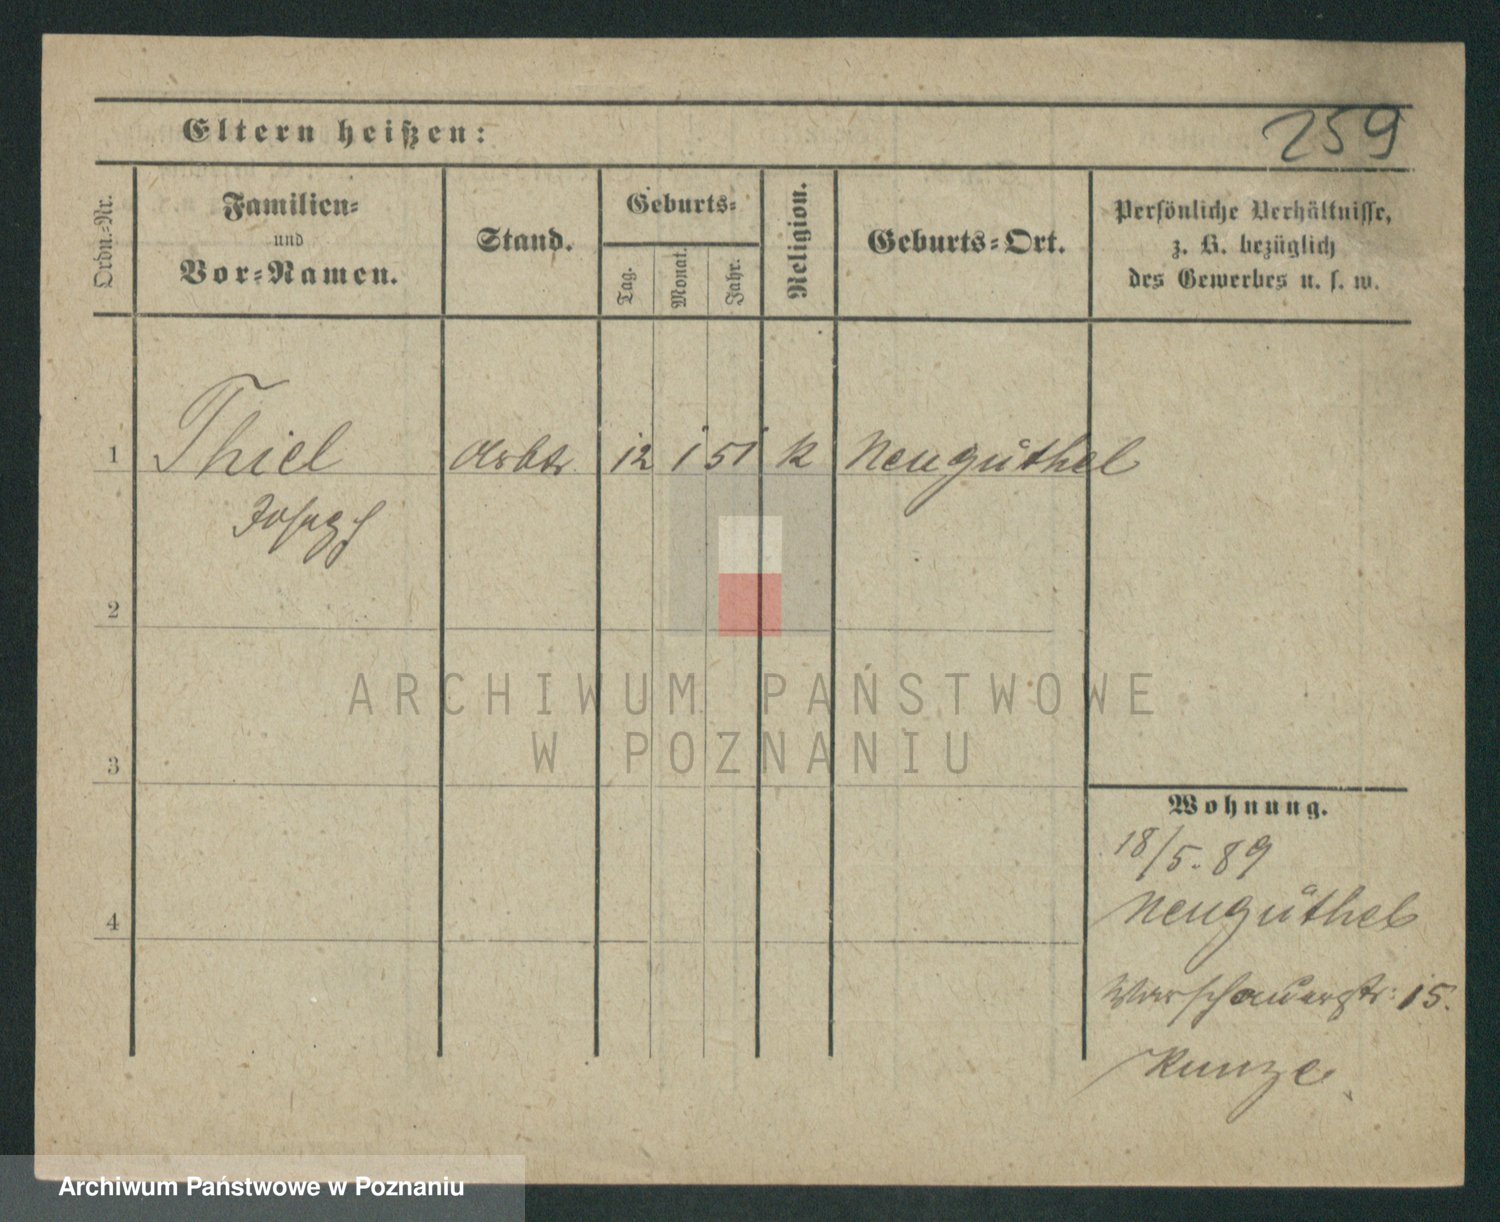 Eltern heißen:
259
Ordn.-Nr.
Familien-
und
Vor-Namen.
Stand.
Geburts-
Tag.
Monat.
Jahr.
Religion.
Geburts-Ort.
Persönliche Verhältnisse,
z. B. bezüglich
des Gewerbes u. s. w.
1 Thiel Arbtr 12 1 51 k Neugüthel
Joseph
2
ARCHIWUM PAŃSTWOWE
W POZNANIU
3
Wohnung.
18/5. 89
4
Neugüthel
Warschauerstr: 15.
Kunze
Archiwum Państwowe w Poznaniu